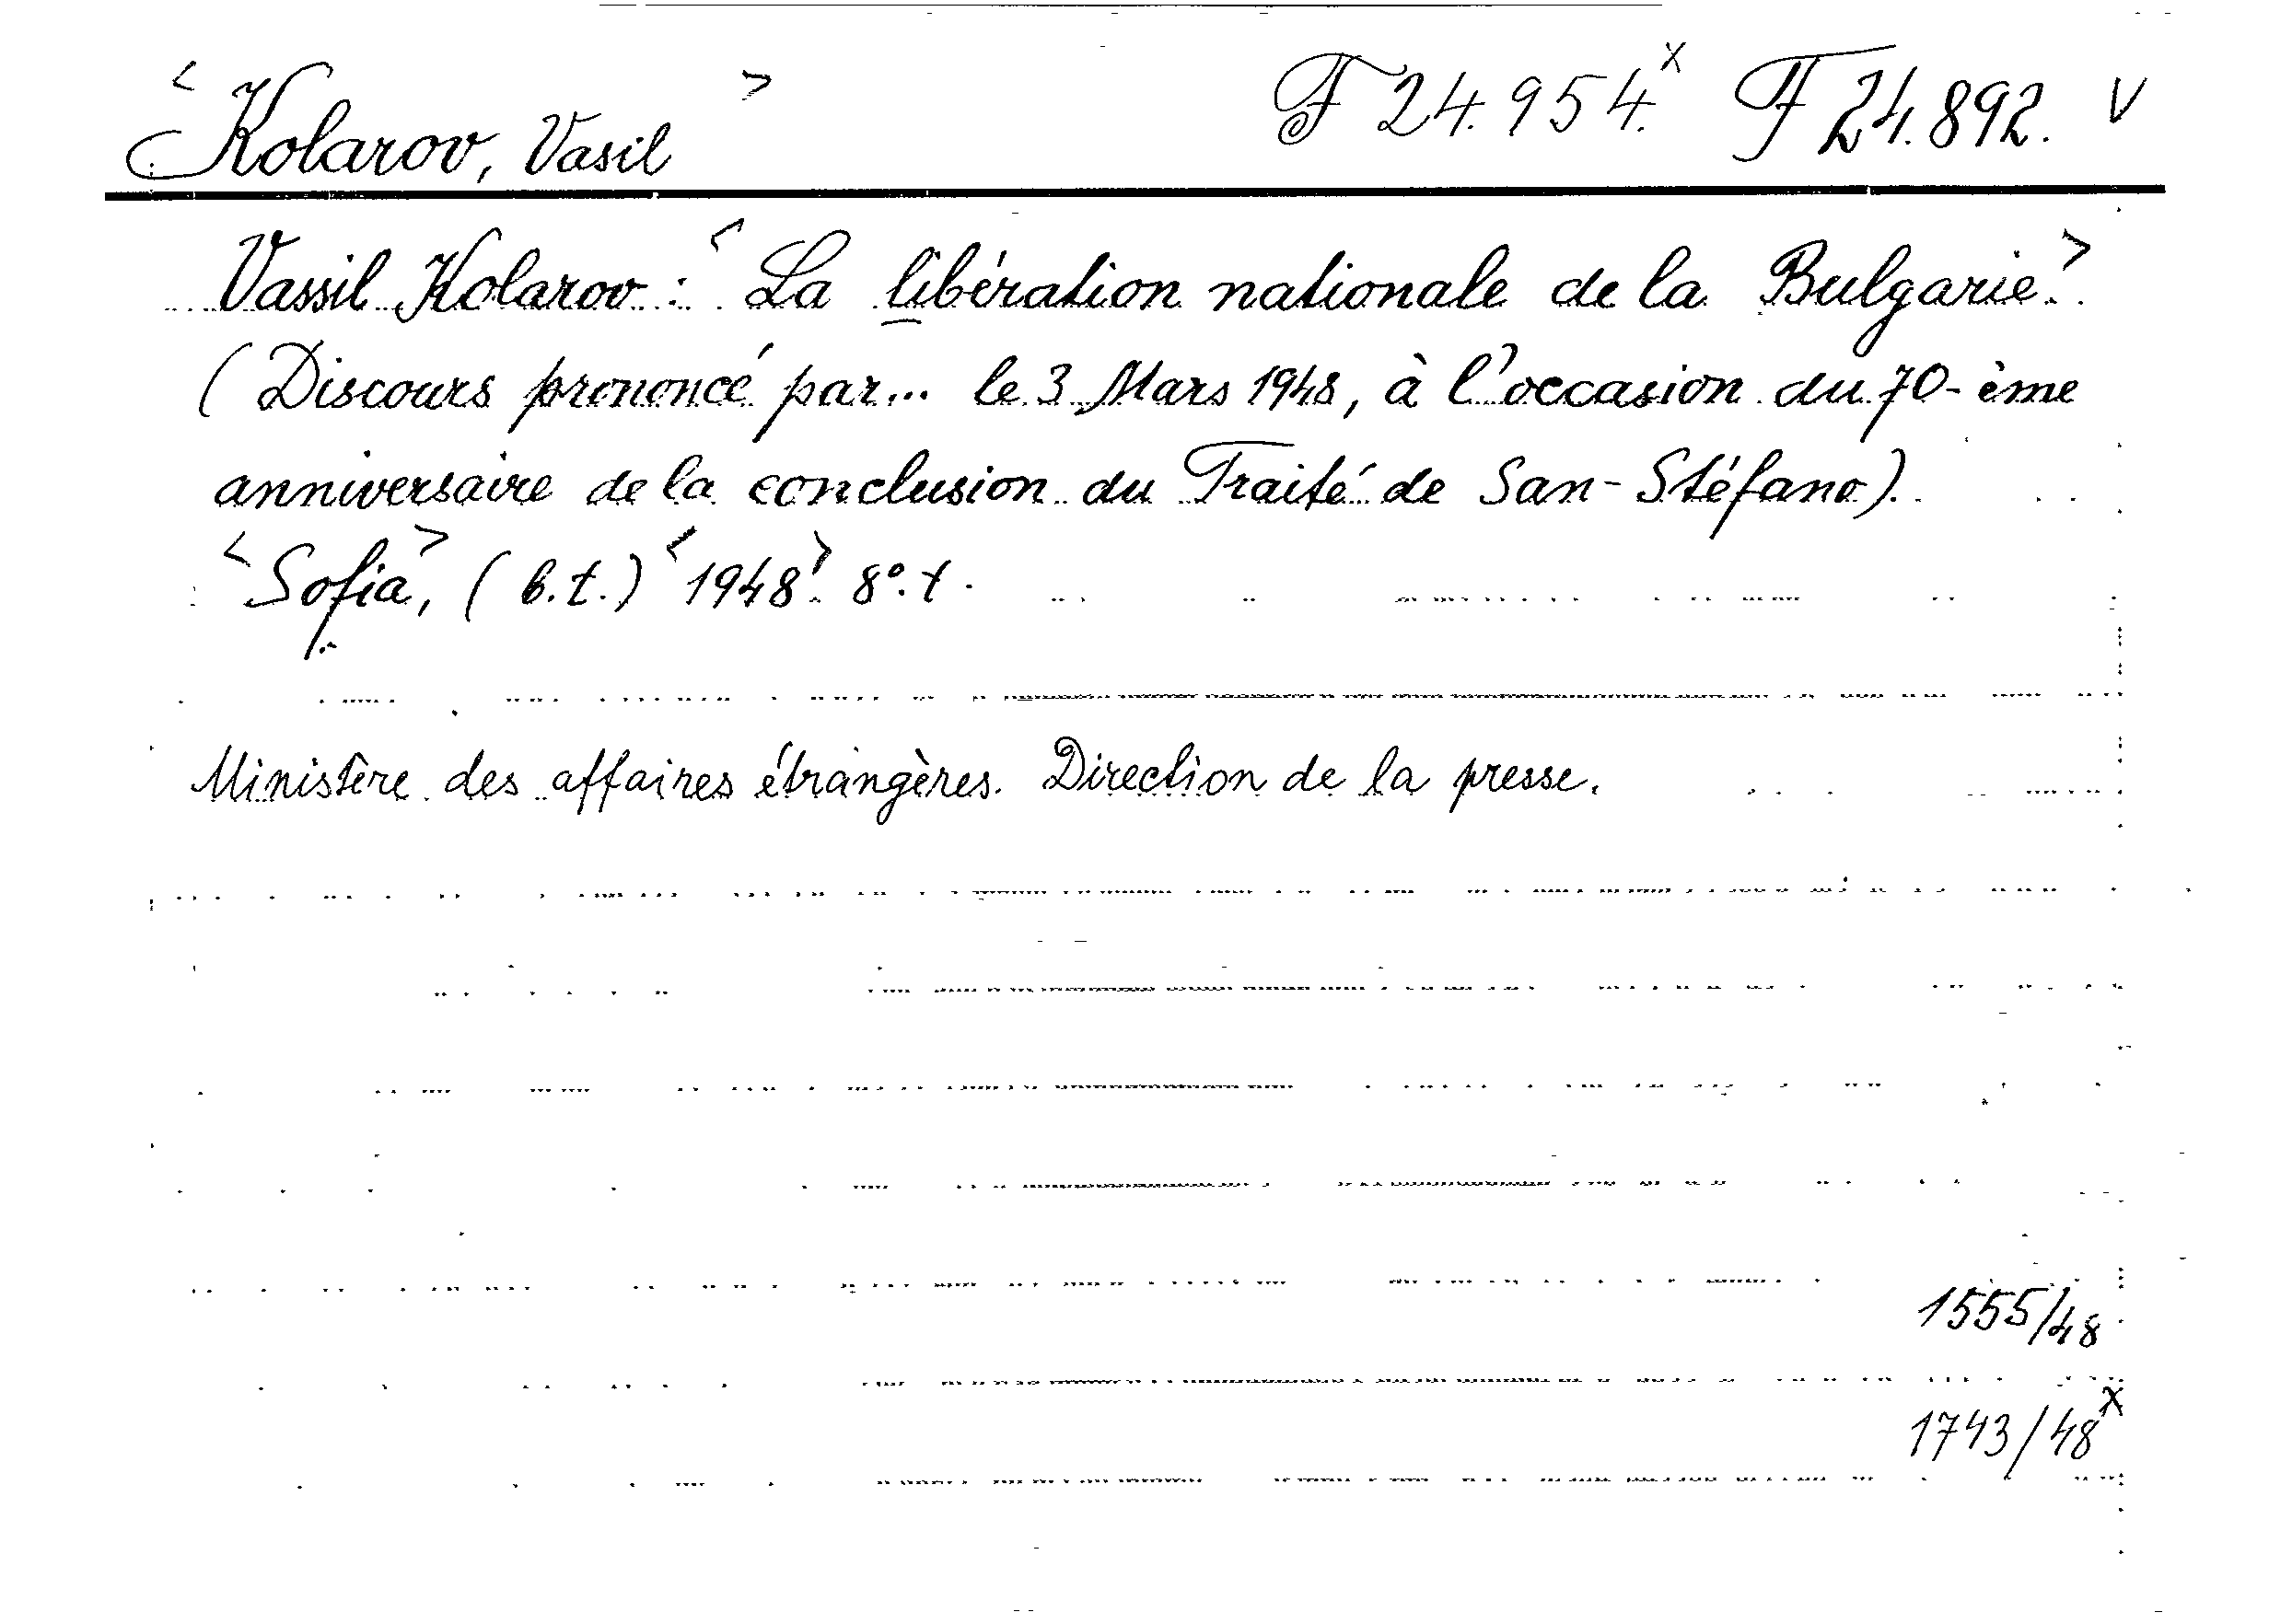 <Kolarov, Vasil> F 24.954.x F 24.892. V
Vassil Kolarov: <La libération nationale de la Bulgarie.>
(Discours prononcé par... le 3 Mars 1948, à l'occasion du 70-ème
anniversaire de la conclusion du Traité de San-Stéfano).
<Sofia>, (b.t.) <1948>. 8°.
Ministère des affaires étrangères. Direction de la presse.
1555/48
1743/48x